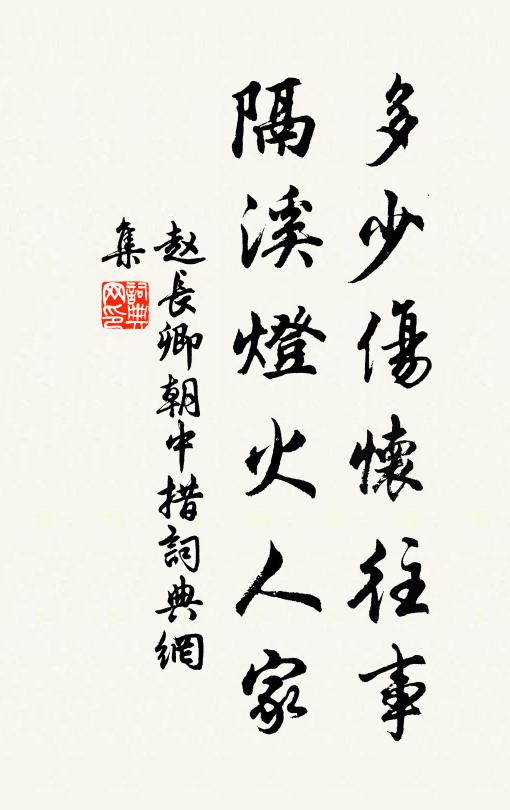 多少傷懷往事
隔溪燈火人家
赵長卿朝中措詞典網
集
詞典
网印